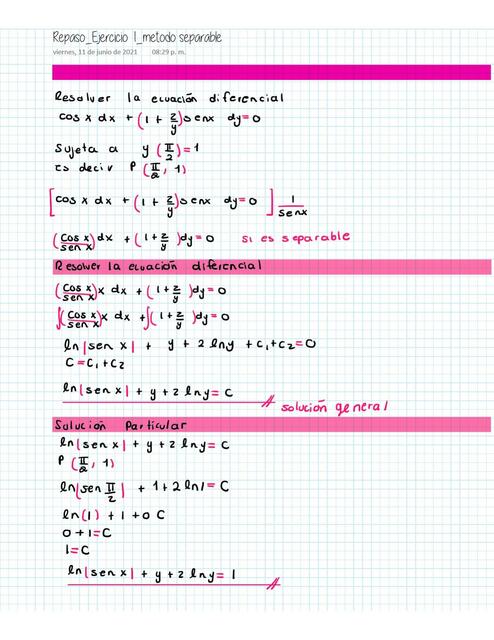 Repaso_Ejercicio 1_metodo separable
viernes, 11 de junio de 2021 08:29 p. m.
Resolver la ecuación diferencial
cos x dx + (1 + 2/y) senx dy = 0
Sujeta a y (π/2) = 1
Es decir P (π/2, 1)
[cos x dx + (1 + 2/y) senx dy = 0] 1/senx
(cos x/sen x) dx + (1 + 2/y) dy = 0 si es separable
Resolver la ecuación diferencial
(cos x/sen x) x dx + (1 + 2/y) dy = 0
∫(cos x/sen x) x dx + ∫(1 + 2/y) dy = 0
ln|sen x| + y + 2 lny + C₁ + C₂ = 0
C = C₁ + C₂
ln|sen x| + y + 2 lny = C
solución general
Solución Particular
ln|sen x| + y + 2 lny = C
P (π/2, 1)
ln|sen π/2| + 1 + 2 ln1 = C
ln(1) + 1 + 0 C
0 + 1 = C
1 = C
ln|sen x| + y + 2 lny = 1